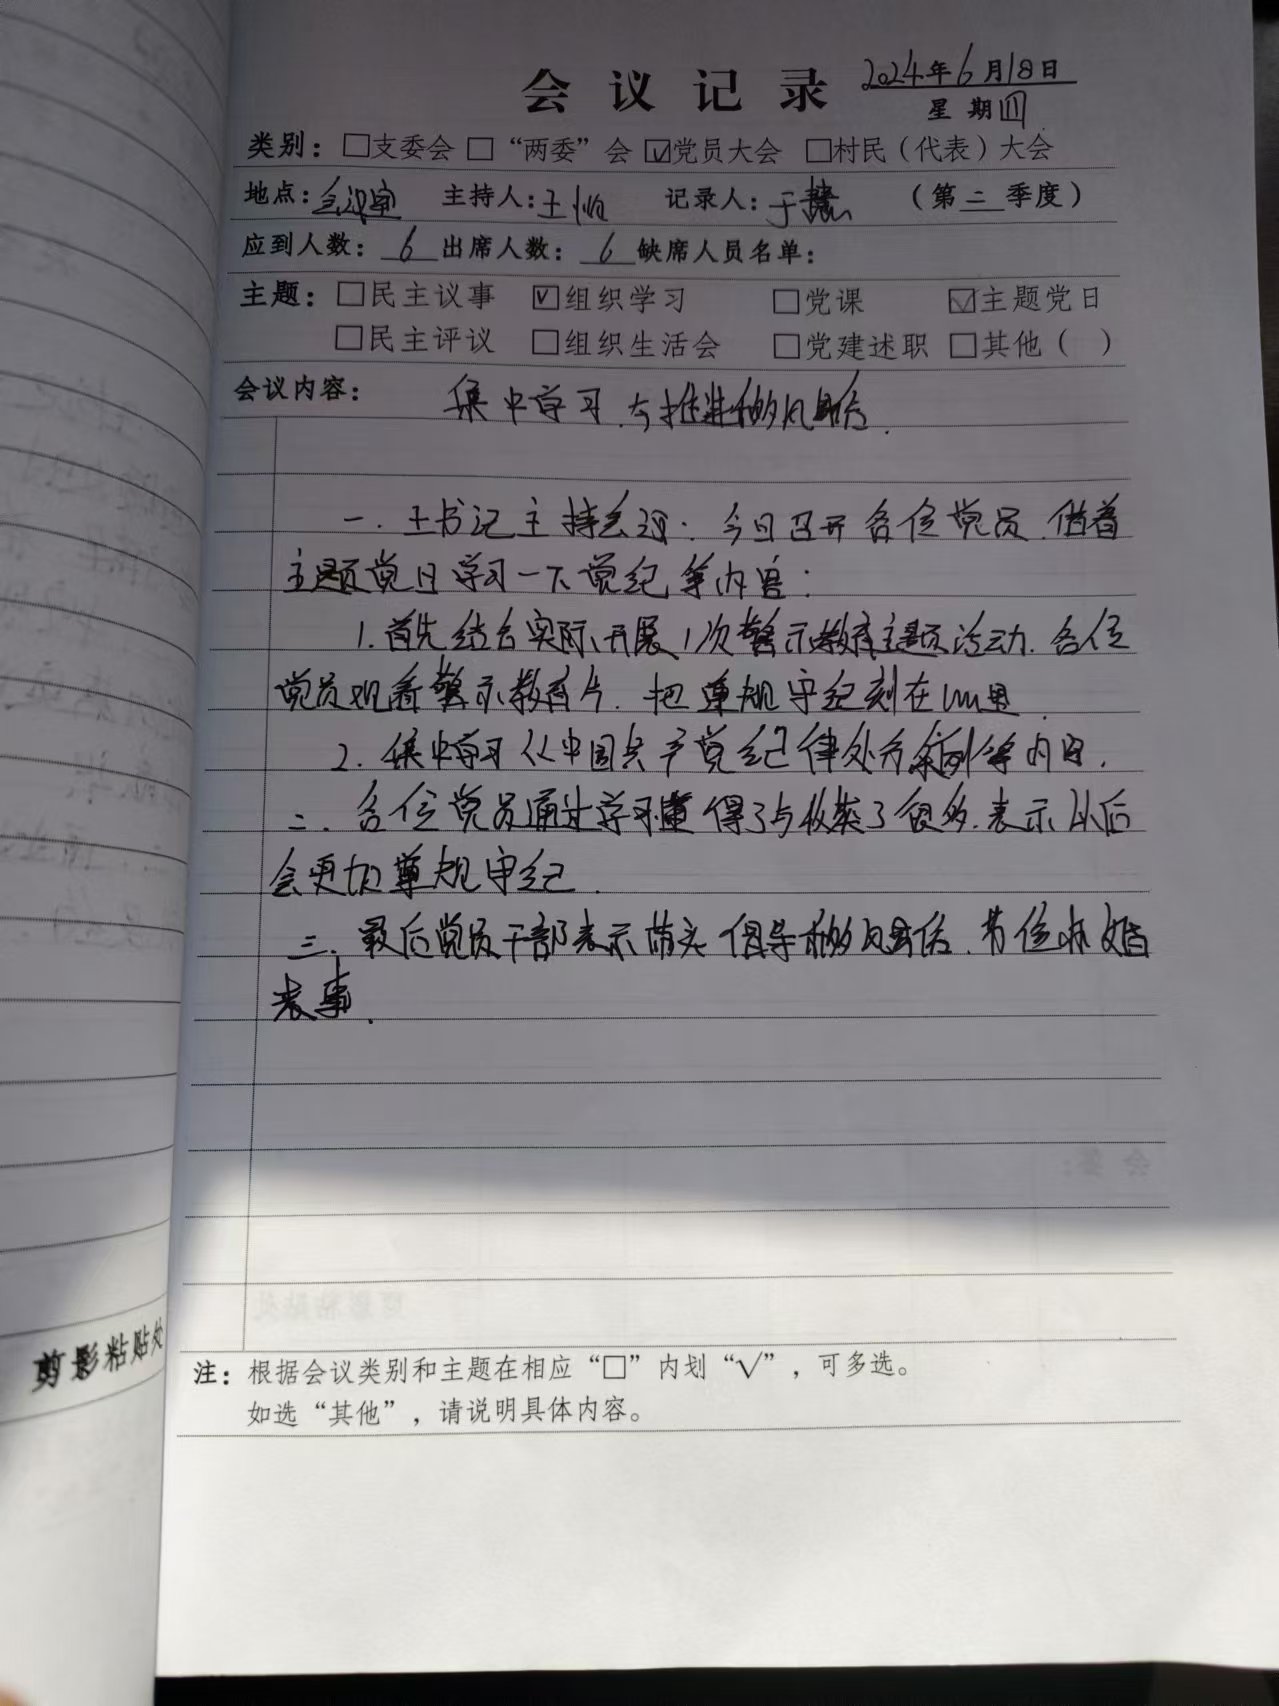 会议记录 2024年6月18日
星期四
类别：□支委会 □“两委”会 ☑党员大会 □村民（代表）大会
地点：会议室 主持人：王 记录人：于 （第二季度）
应到人数：6 出席人数：6 缺席人员名单：
主题：□民主议事 ☑组织学习 □党课 ☑主题党日
□民主评议 □组织生活会 □党建述职 □其他（ ）
会议内容： 集中学习.与推进移风易俗.
一.王书记主持会议：今日召开各位党员.借着
主题党日学习一下党纪等内容：
1.首先结合实际、开展1次警示教育主题活动.各位
党员观看警示教育片.把遵规守纪刻在心里.
2.集中学习《中国共产党纪律处分条例等内容.
二.各位党员通过学习懂得了与收获了很多.表示以后
会更加遵规守纪.
三.最后党员干部表示带头倡导移风易俗. 婚
丧事.
注：根据会议类别和主题在相应“□”内划“√”，可多选。
如选“其他”，请说明具体内容。
剪影粘贴处